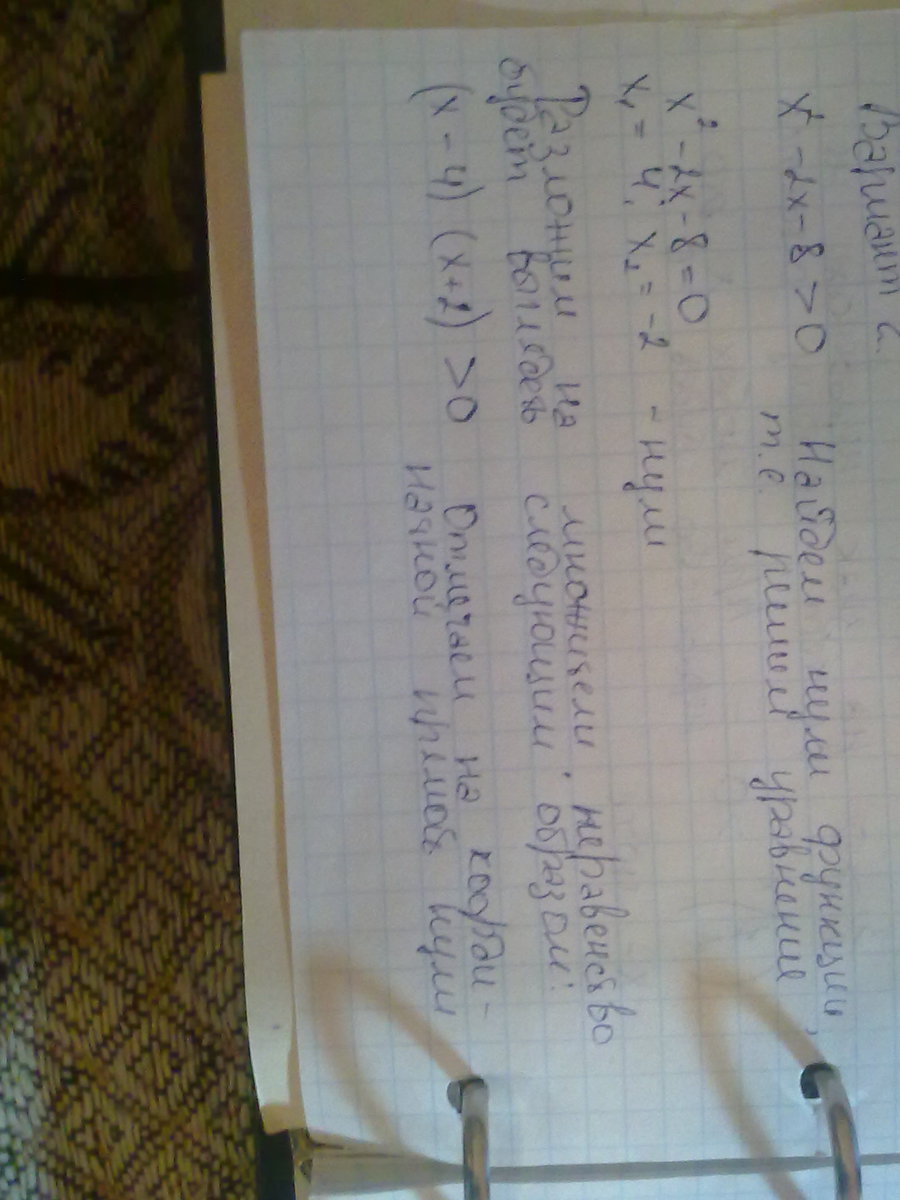 Вариант 2.
x² - 2x - 8 > 0 Найдем нули функции,
т.е. решим уравнение
x² - 2x - 8 = 0
x₁ = 4, x₂ = -2 - нули
Разложим на множители. неравенство
будет выглядеть следующим образом:
(x - 4) (x + 2) > 0 Отмечаем на коорди-
натной прямой нули